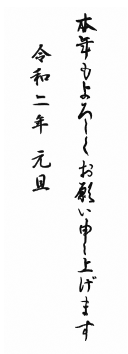 本年もよろしくお願い申し上げます
令和二年 元旦